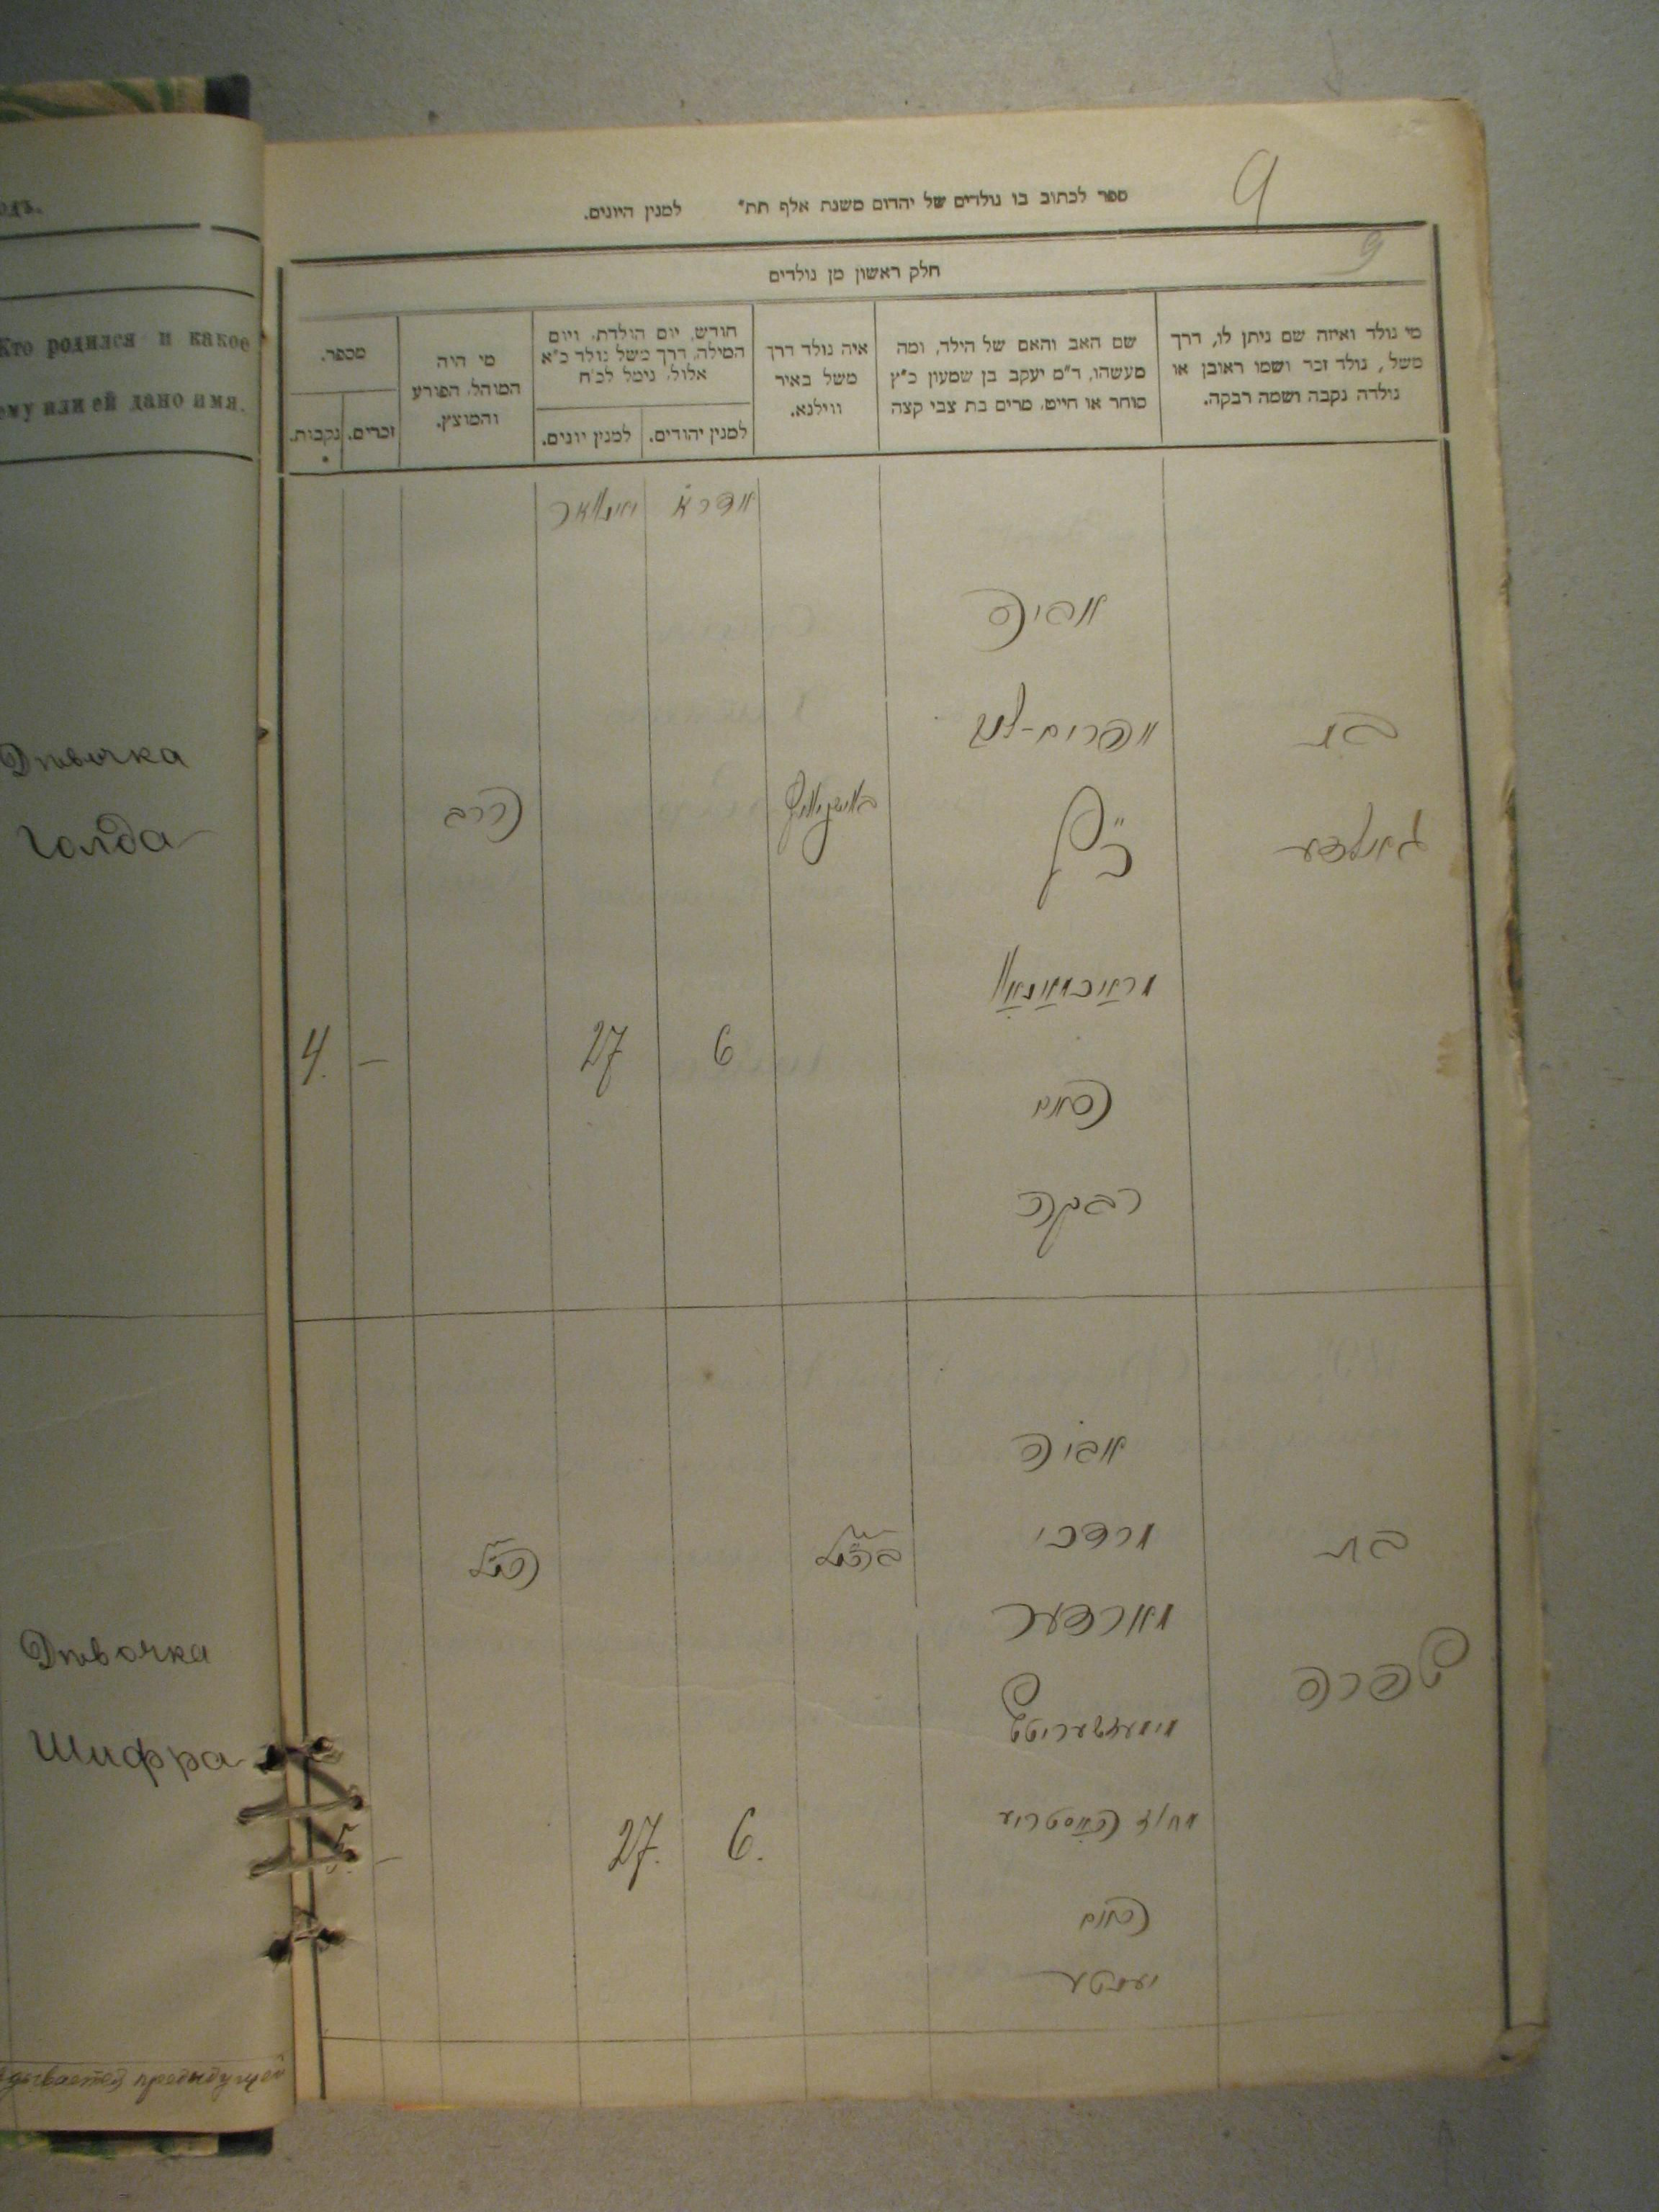 ספר לכתוב בו נולדים של יהדום משנת אלף תת״ למנין היונים.
9
9
חלק ראשון מן נולדים
מי נולד ואיזה שם ניתן לו, דרך
משל, נולד זכר ושמו ראובן או
נולדה נקבה ושמה רבקה.
שם האב והאם של הילד, ומה
מעשהו, ד״מ יעקב בן שמעון כ״ץ
סוחר או חייט, מרים בת צבי קצה
איה נולד דרך
משל באיר
ווילנא.
חודש, יום הולדת, ויום
המילה, דרך משל נולד כ״א
אלול, נימל לכ״ח
למנין יהודים.
למנין יונים.
מי היה
המוהל, הפורע
והמוצץ.
מספר.
זכרים.
נקבות.
אדר א
יאנואר
אביה
בת
אפרים-
גאלדע
הרב
כ״ץ
6
27
—
4.
האם
רבקה
אביה
בת
מרדכי
הנ״ל
בהנ״ל
מארדער
שפרה
6.
27.
—
5.
האם
יענטע
одъ.
Кто родился и какое
ему или ей дано имя.
Дѣвочка
Голда
Дѣвочка
Шифра
предыдущей